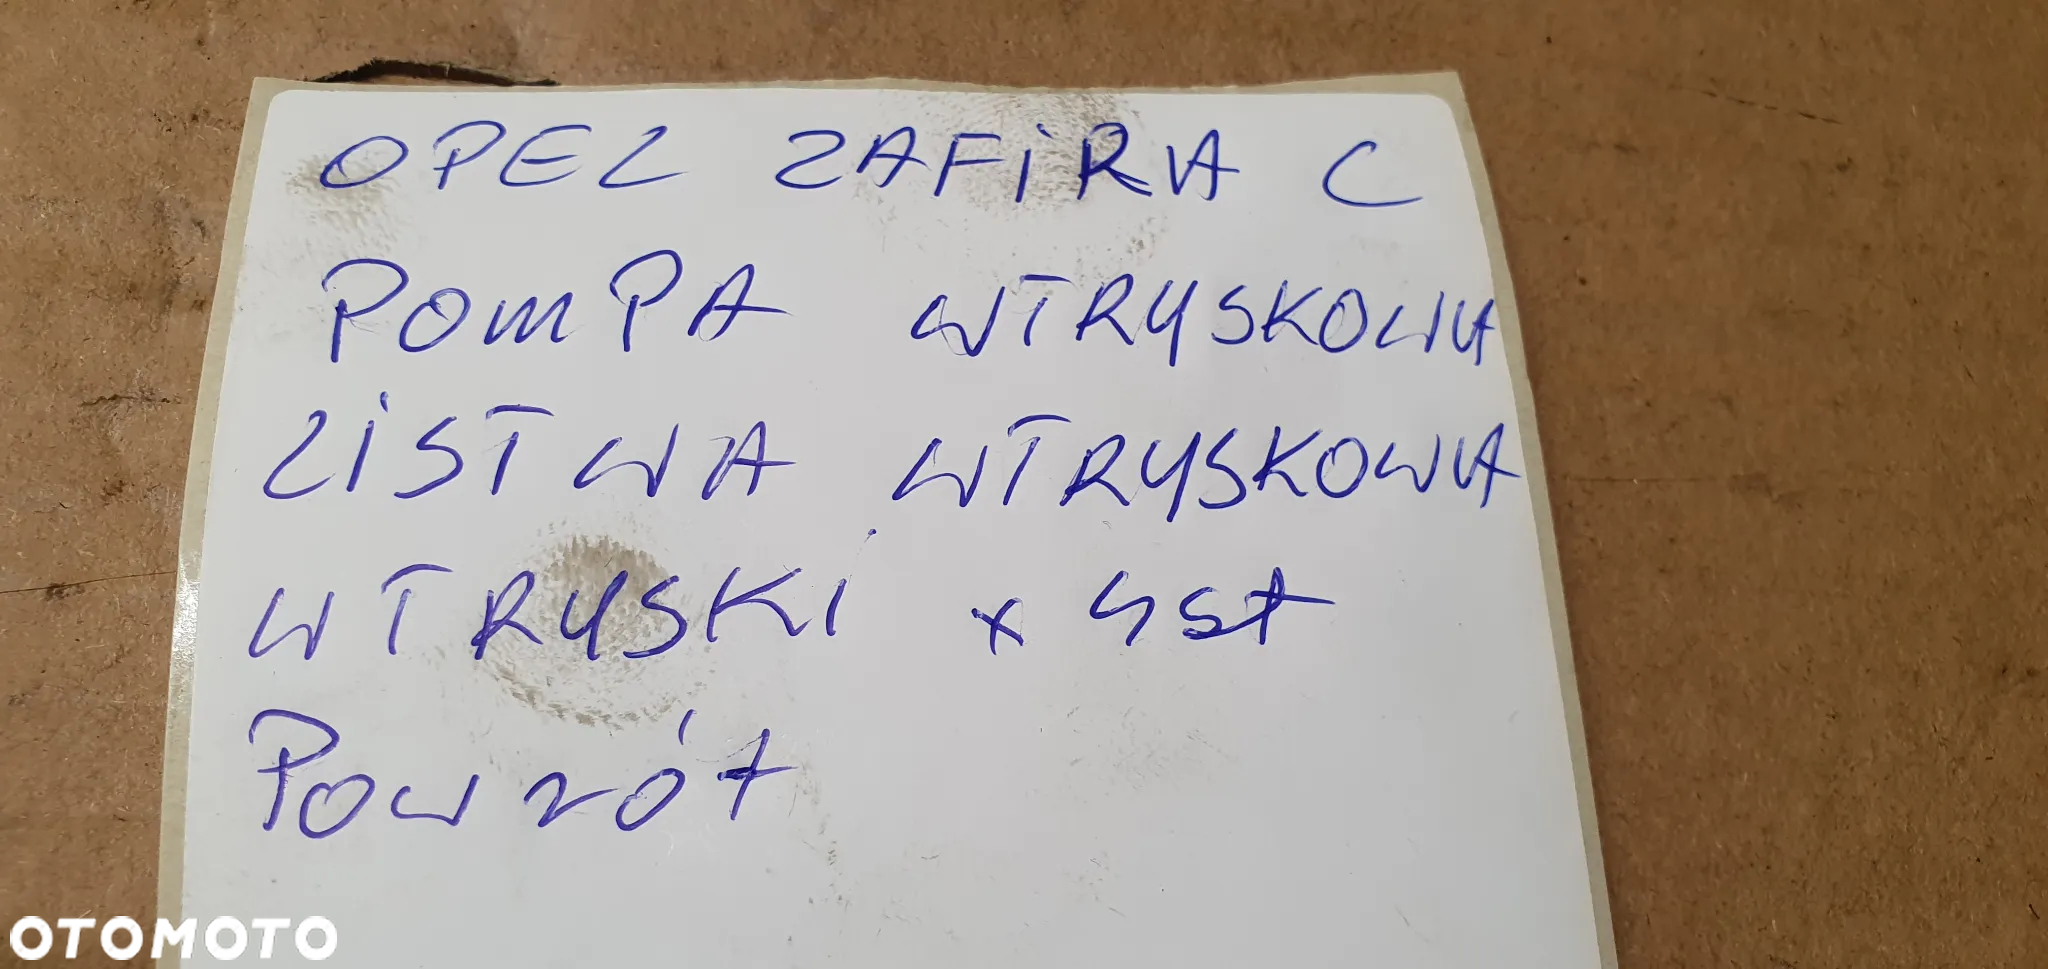 OPEL ZAFiRA C
POMPA WTRYSKOWA
LiSTWA WTRYSKOWA
WTRYSKi x 4szt
POWRÓT
OTOMOTO